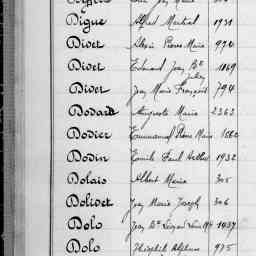 Digue Alfred Martial 1931
Divet Alexis Pierre Marie 974
Divet Edmond Jean Bte 1869
Divet Jean Marie François 794
Dodard Auguste Marie 2363
Dodier Emmanuel Pierre Marie
Dodin Emile Paul Arthur 1932
Dolais Albert Marie 305
Dolivet Jean Marie Joseph 306
Dolo Jean Bte 1037
Dolo Théophile 975